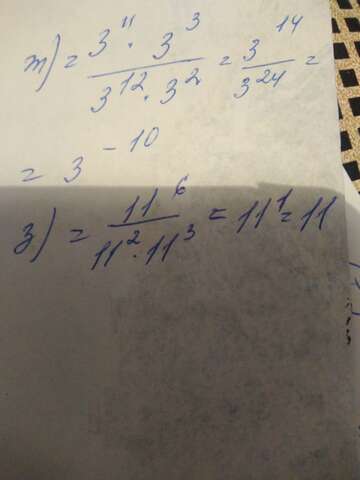 ж) = (3^11 · 3^3) / (3^12 · 3^2) = 3^14 / 3^24 =
= 3^-10
з) = 11^6 / (11^2 · 11^3) = 11^1 = 11